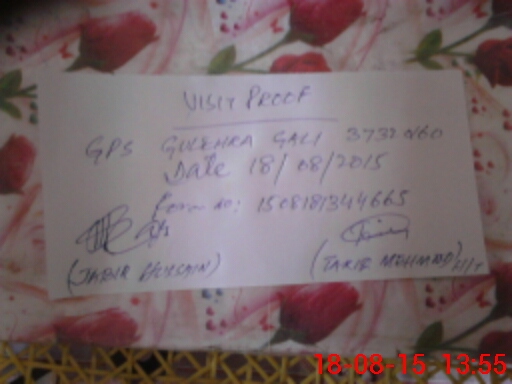 VISIT PROOF
GPS GULEHRA GALI 37320160
Date 18/08/2015
Form no: 1508181344665
(JABIR HUSSAIN) (TARIQ MEHMOOD)
18-08-15 13:55